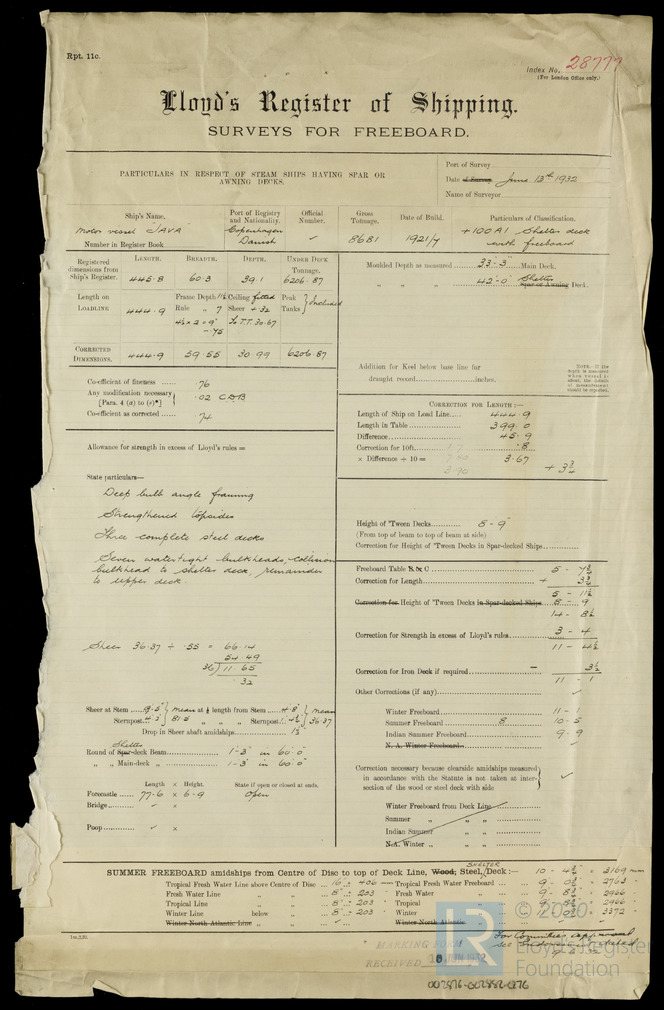 Rpt. 11c.
Index No. 28777
(For London Office only.)
Lloyd's Register of Shipping.
SURVEYS FOR FREEBOARD.
PARTICULARS IN RESPECT OF STEAM SHIPS HAVING SPAR OR
AWNING DECKS.
Port of Survey
Date of Survey June 13th 1932
Name of Surveyor
Ship's Name.
Port of Registry and Nationality.
Official Number.
Gross Tonnage.
Date of Build.
Particulars of Classification.
Motor vessel JAVA
Copenhagen
Danish
8681
1921/7
+100A1 Shelter deck
with freeboard
Number in Register Book
Registered dimensions from Ship's Register.
LENGTH. BREADTH. DEPTH. UNDER DECK TONNAGE.
445.8 60.3 39.1 6206.87
Length on LOADLINE
444.9
Frame Depth 11½
Rule „ 7
4½ x 2 = 9"
= .75
Ceiling fitted
Sheer + .32
To T.T. 30.67
Peak Tanks } Included
CORRECTED DIMENSIONS.
444.9 59.55 30.99 6206.87
Moulded Depth as measured 33'-3" Main Deck.
„ „ „ 42'-0" Shelter Spar or Awning Deck.
Addition for Keel below base line for
draught record inches.
Co-efficient of fineness .76
Any modification necessary
[Para. 4 (a) to (e)*] } .02 CDB
Co-efficient as corrected .74
Allowance for strength in excess of Lloyd's rules =
State particulars—
Deep bulb angle framing
Strengthened topsides
Three complete steel decks
Seven watertight bulkheads, collision
bulkhead to shelter deck, remainder
to upper deck.
CORRECTION FOR LENGTH :—
Length of Ship on Load Line 444.9
Length in Table 399.0
Difference 45.9
Correction for 10ft. .8
× Difference ÷ 10 = 3.67
+ 3¾
Height of 'Tween Decks 8 - 9"
(From top of beam to top of beam at side)
Correction for Height of 'Tween Decks in Spar-decked Ships
Freeboard Table B & C 5 - 7¾
Correction for Length + 3¾
5 - 11½
Correction for Height of 'Tween Decks in Spar-decked Ships 8 - 9
14 - 8½
Correction for Strength in excess of Lloyd's rules 3 - 4
11 - 4½
Correction for Iron Deck if required — 3½
11 - 1
Other Corrections (if any)
Winter Freeboard 11 - 1
Summer Freeboard 8 10 - 5
Indian Summer Freeboard 9 - 9
N. A. Winter Freeboard
Sheer 36.37 ÷ .55 = 66.14
54.49
36)11.65
.32
Sheer at Stem
Sternpost
mean at ¼ length from Stem
81.5 „ „ „ Sternpost
mean
36.37
Drop in Sheer abaft amidships 1½"
Round of Shelter Spar-deck Beam 1'-3" in 60'.0"
„ „ Main-deck „ 1'-3" in 60'.0"
Length × Height. State if open or closed at ends.
Forecastle 77.6 × 6-9 Open
Bridge ×
Poop ×
Correction necessary because clearside amidships measured
in accordance with the Statute is not taken at inter-
section of the wood or steel deck with side
Winter Freeboard from Deck Line
Summer „ „
Indian Summer „ „
N.A. Winter „ „
SUMMER FREEBOARD amidships from Centre of Disc to top of Deck Line, Wood, Steel, SHELTER Deck :— 10 - 4¾" = 3169 mm
Tropical Fresh Water Line above Centre of Disc 16" : 406 — Tropical Fresh Water Freeboard 9 - 0¾" = 2763
Fresh Water Line „ „ 8" : 203 Fresh Water „ 9 - 8¾ = 2966
Tropical Line „ „ 8" : 203 Tropical „ 9 - 8¾ = 2966
Winter Line below „ 8" : 203 Winter „ = 3372
Winter North Atlantic Line „ Winter North Atlantic
For Committee's approval
MARKING FORM
RECEIVED 10 JUN 1932
002876-002882-0276
© 2020
LR
Lloyd's Register
Foundation